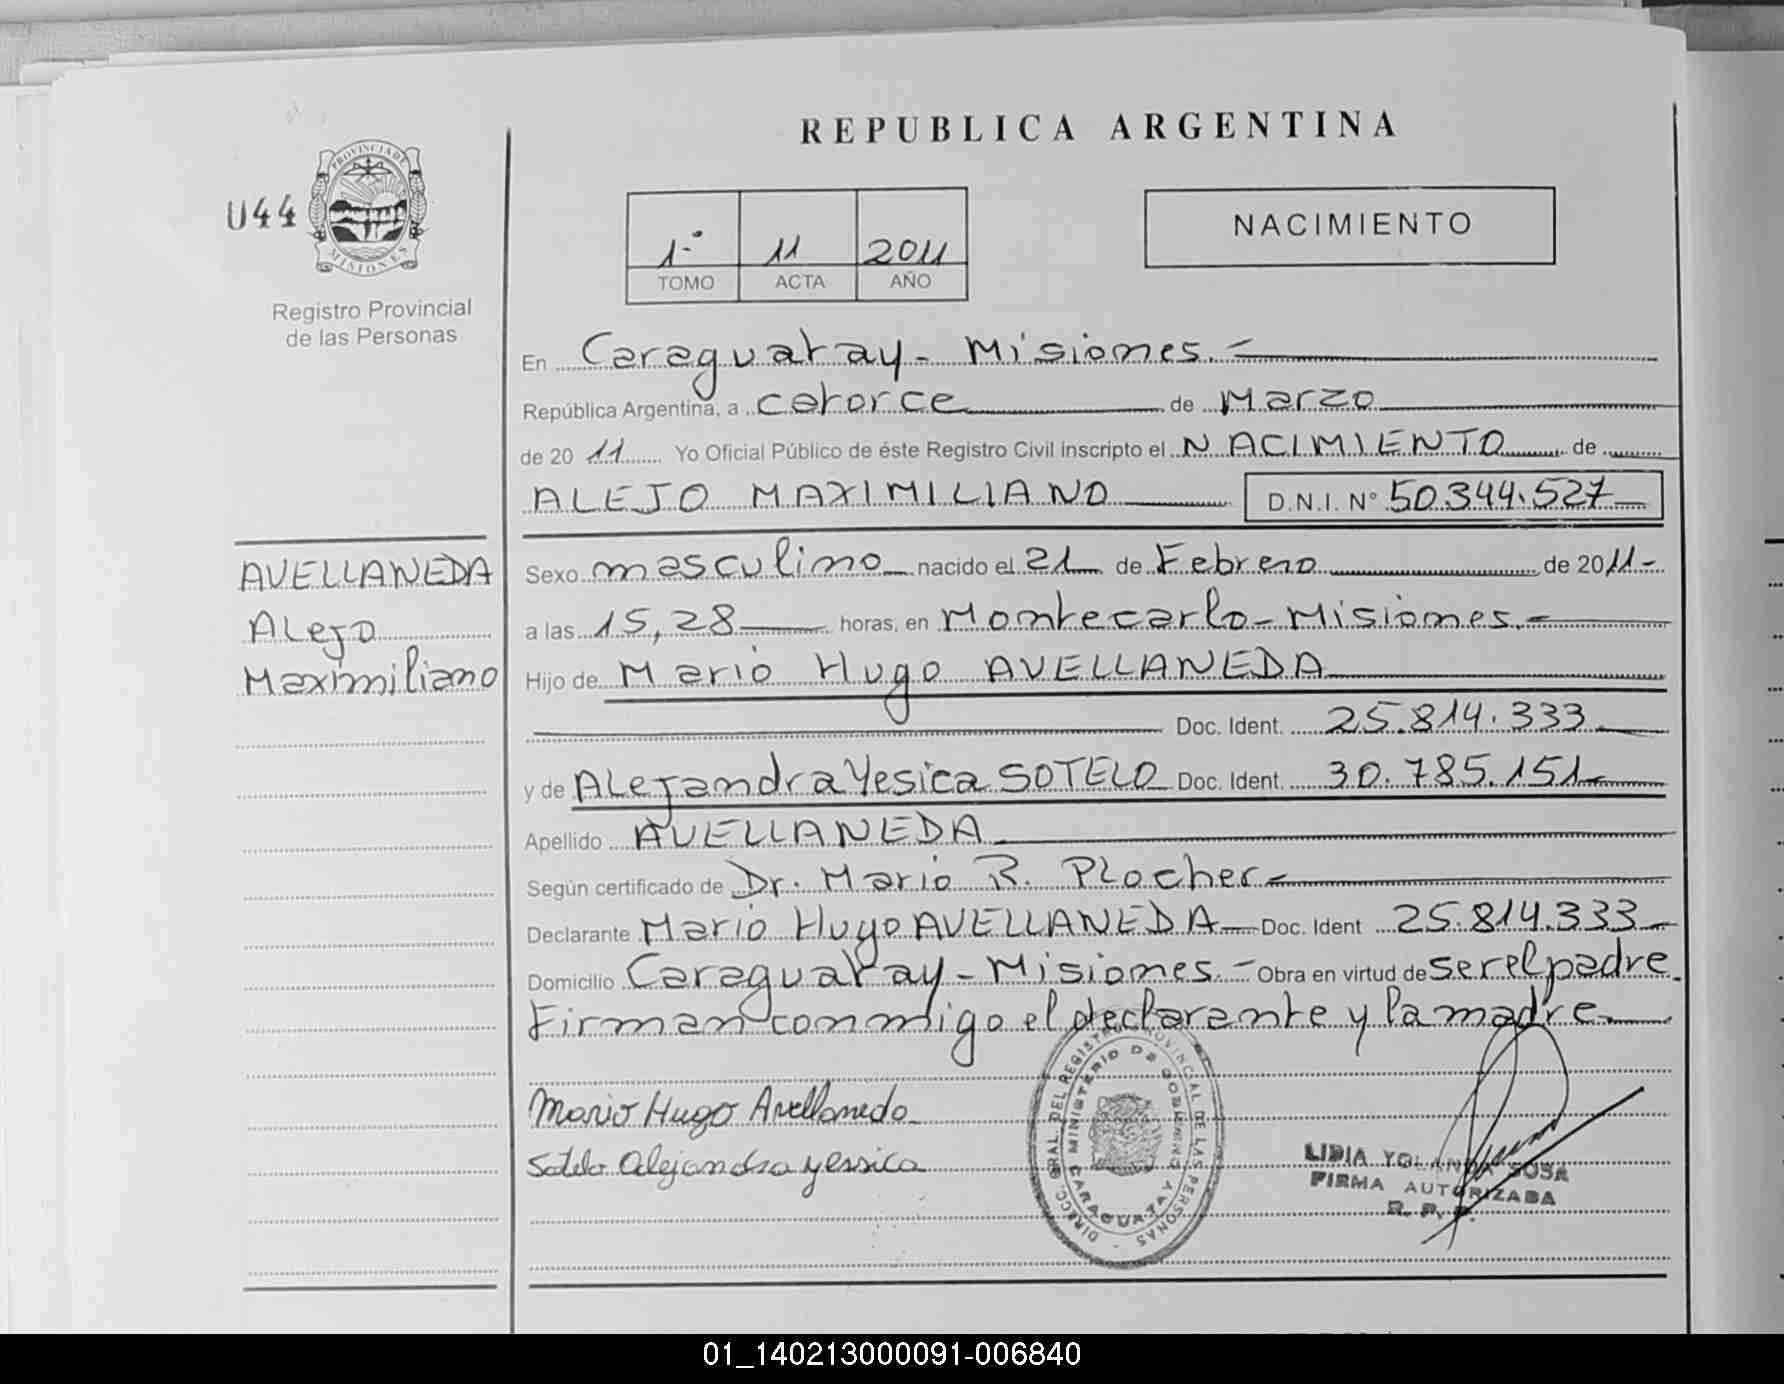 REPUBLICA ARGENTINA
U44
PROVINCIA DE MISIONES
Registro Provincial
de las Personas
1º 11 2011
TOMO ACTA AÑO
NACIMIENTO
En Caraguatay - Misiones.-
República Argentina, a catorce de Marzo
de 20 11 Yo Oficial Público de éste Registro Civil inscripto el NACIMIENTO de
ALEJO MAXIMILIANO D.N.I. Nº 50.344.527
AVELLANEDA
Alejo
Maximiliano
Sexo masculino nacido el 21 de Febrero de 2011-
a las 15,28 horas, en Montecarlo - Misiones.-
Hijo de Mario Hugo AVELLANEDA
Doc. Ident. 25.814.333
y de Alejandra Yesica SOTELO Doc. Ident. 30.785.151
Apellido AVELLANEDA
Según certificado de Dr. Mario R. Plocher
Declarante Mario Hugo AVELLANEDA Doc. Ident 25.814.333
Domicilio Caraguatay - Misiones.- Obra en virtud de ser el padre.
Firman conmigo el declarante y la madre
Mario Hugo Avellaneda
Sotelo Alejandra yessica
DIRECC. GRAL. DEL REGISTRO PROVINCIAL DE LAS PERSONAS
MINISTERIO DE GOBIERNO
CARAGUATAY
LIDIA YOLANDA SOSA
FIRMA AUTORIZADA
01_140213000091-006840